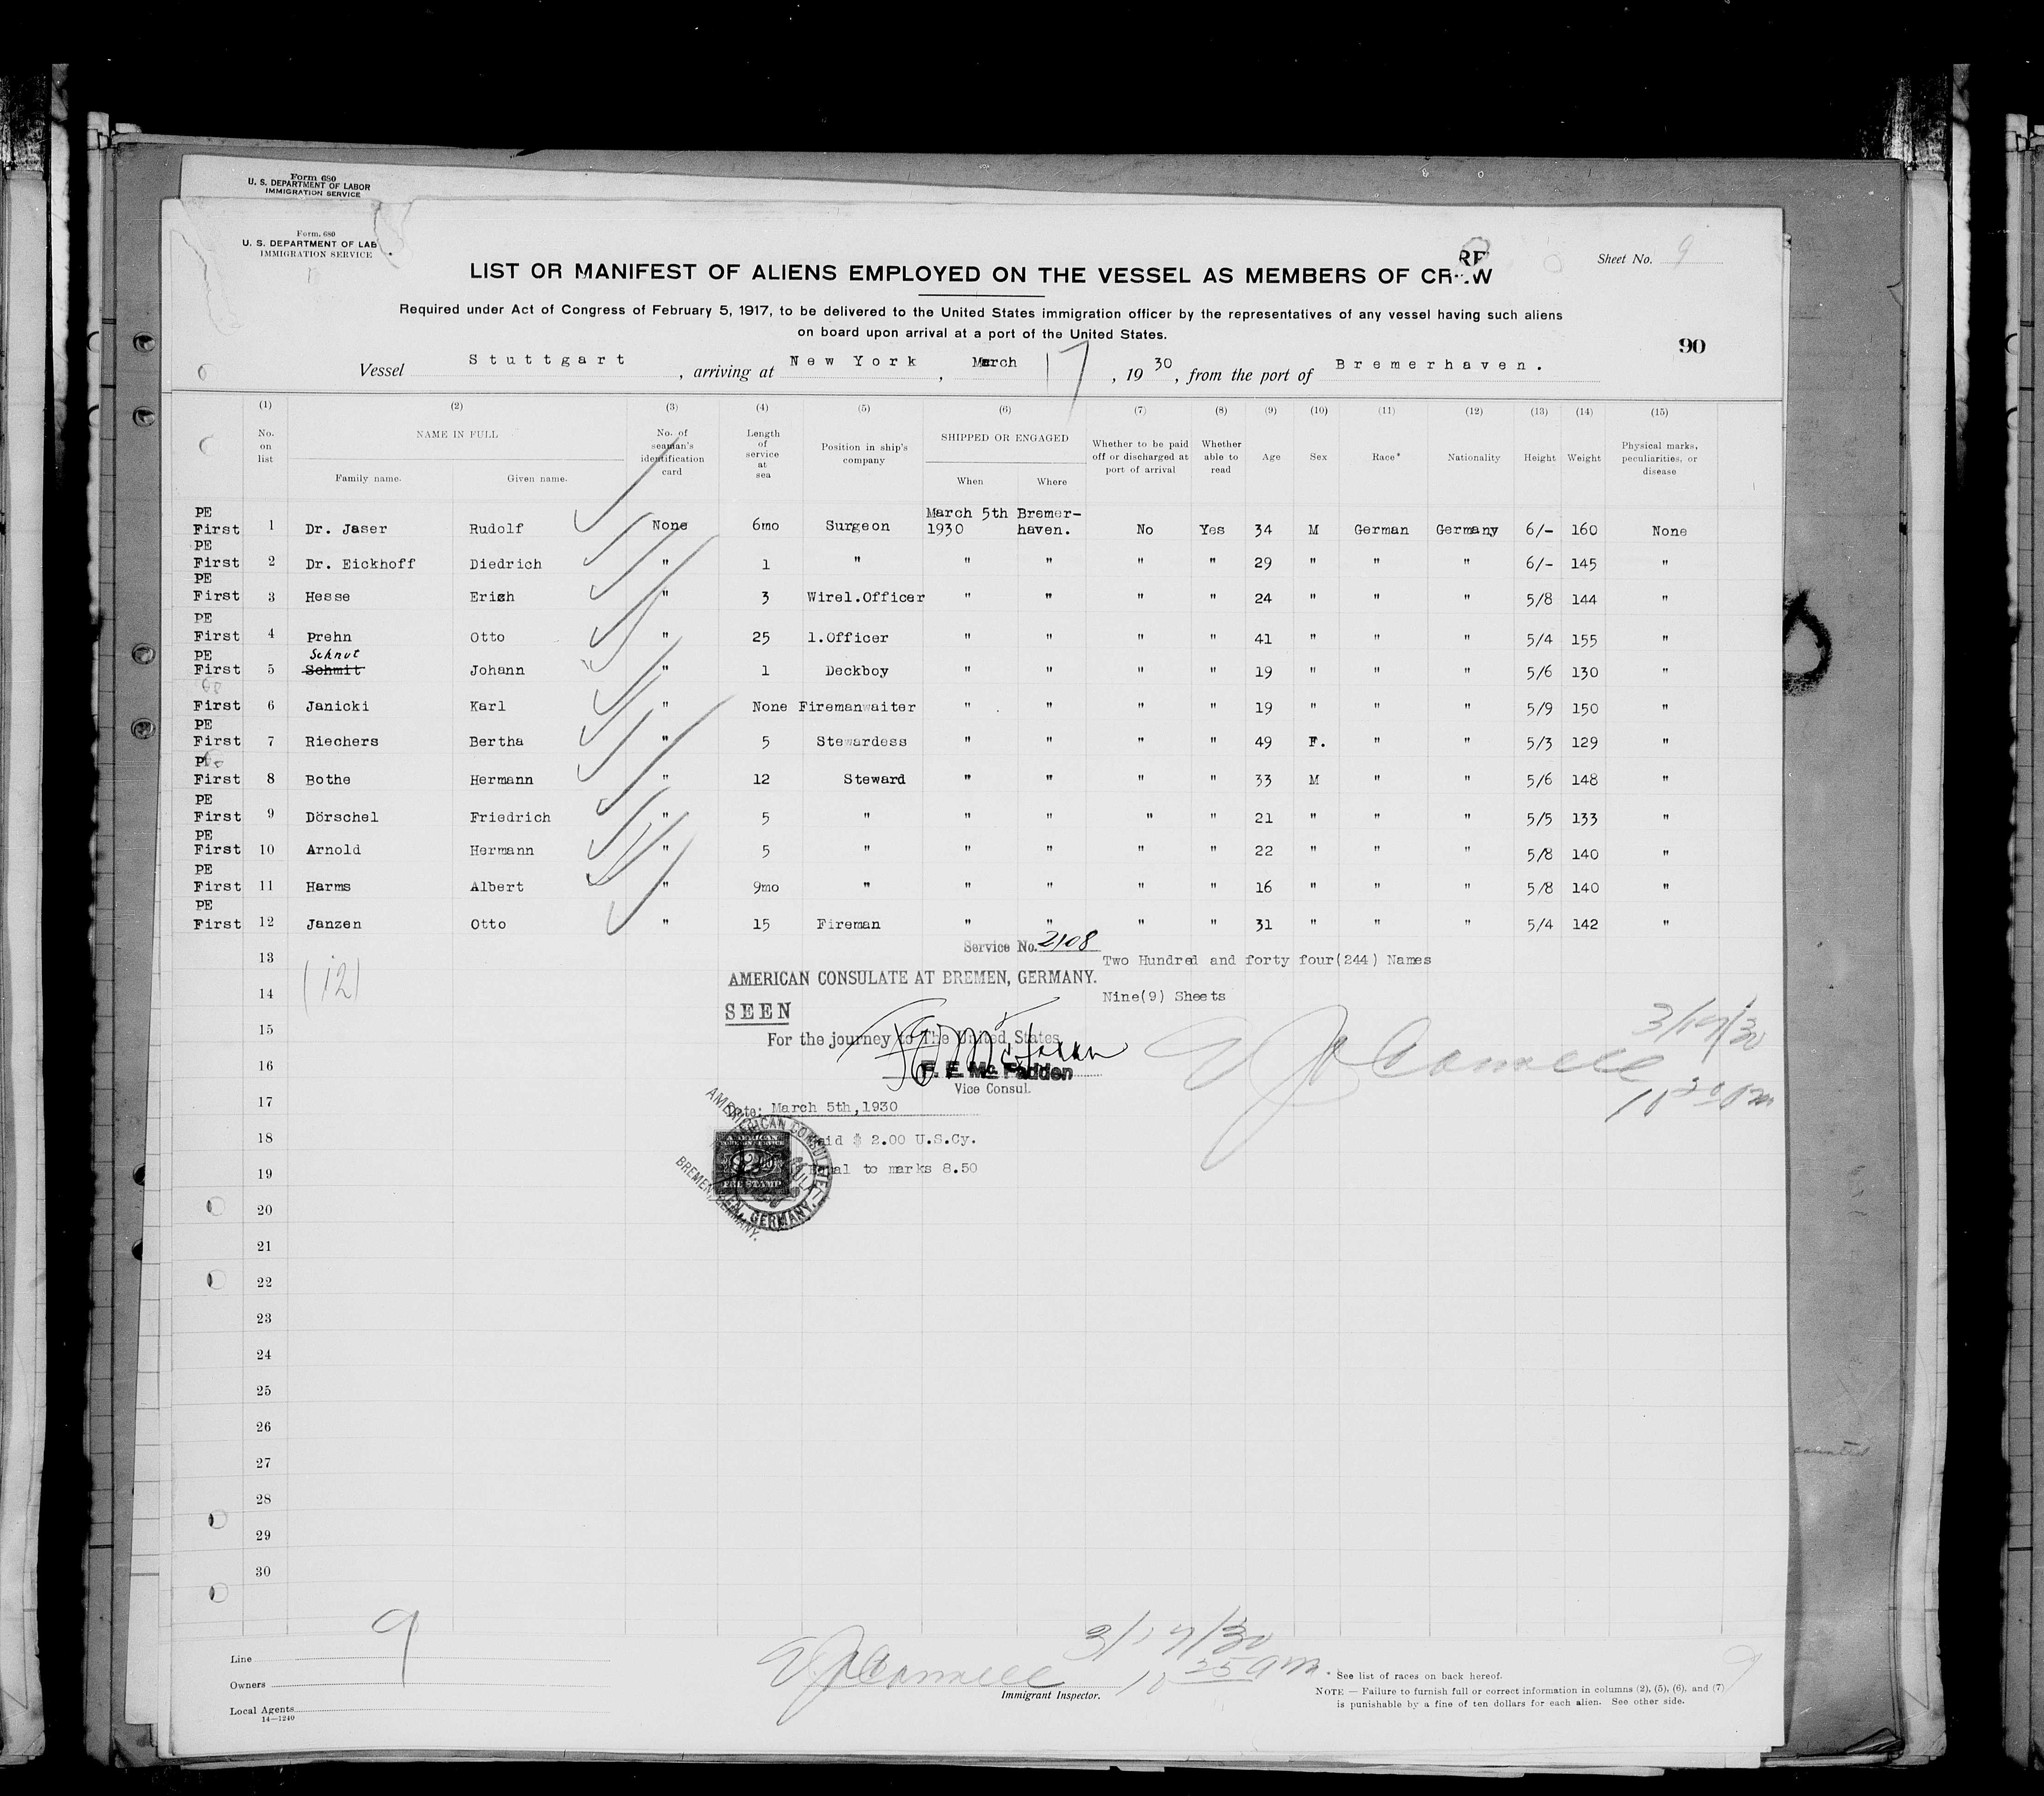 Form 680
U. S. DEPARTMENT OF LABOR
IMMIGRATION SERVICE
Form. 680
U. S. DEPARTMENT OF LAB
IMMIGRATION SERVICE
Sheet No. 9
LIST OR MANIFEST OF ALIENS EMPLOYED ON THE VESSEL AS MEMBERS OF CREW
Required under Act of Congress of February 5, 1917, to be delivered to the United States immigration officer by the representatives of any vessel having such aliens
on board upon arrival at a port of the United States.
90
Vessel Stuttgart, arriving at New York, March 17, 1930, from the port of Bremerhaven.
(1) (2) (3) (4) (5) (6) (7) (8) (9) (10) (11) (12) (13) (14) (15)
No. on list NAME IN FULL Family name. Given name. No. of seaman's identification card Length of service at sea Position in ship's company SHIPPED OR ENGAGED When Where Whether to be paid off or discharged at port of arrival Whether able to read Age Sex Race* Nationality Height Weight Physical marks, peculiarities, or disease
PE March 5th Bremer-
First 1 Dr. Jaser Rudolf None 6mo Surgeon 1930 haven. No Yes 34 M German Germany 6/- 160 None
PE
First 2 Dr. Eickhoff Diedrich " 1 " " " " " 29 " " " 6/- 145 "
PE
First 3 Hesse Erich " 3 Wirel.Officer " " " " 24 " " " 5/8 144 "
PE
First 4 Prehn Otto " 25 1.Officer " " " " 41 " " " 5/4 155 "
PE Schnut
First 5 Schmit Johann " 1 Deckboy " " " " 19 " " " 5/6 130 "
First 6 Janicki Karl " None Firemanwaiter " " " " 19 " " " 5/9 150 "
PE
First 7 Riechers Bertha " 5 Stewardess " " " " 49 F. " " 5/3 129 "
First 8 Bothe Hermann " 12 Steward " " " " 33 M " " 5/6 148 "
PE
First 9 Dörschel Friedrich " 5 " " " " " 21 " " " 5/5 133 "
PE
First 10 Arnold Hermann " 5 " " " " " 22 " " " 5/8 140 "
PE
First 11 Harms Albert " 9mo " " " " " 16 " " " 5/8 140 "
PE
First 12 Janzen Otto " 15 Fireman " " " " 31 " " " 5/4 142 "
Service No. 2108
13
Two Hundred and forty four(244) Names
(12)
AMERICAN CONSULATE AT BREMEN, GERMANY.
14
Nine(9) Sheets
SEEN
15
3/17/30
For the journey to The United States
16
F. E. Mc Fadden
Vice Consul.
17
Date: March 5th, 1930
18
aid $ 2.00 U.S.Cy.
19
ual to marks 8.50
AMERICAN CONSULATE
BREMEN, GERMANY.
FEE STAMP
20
21
22
23
24
25
26
27
28
29
30
9
3/17/30
10 25 am
Line
Owners
Local Agents
14—1240
Immigrant Inspector.
* See list of races on back hereof.
NOTE — Failure to furnish full or correct information in columns (2), (5), (6), and (7)
is punishable by a fine of ten dollars for each alien. See other side.
9